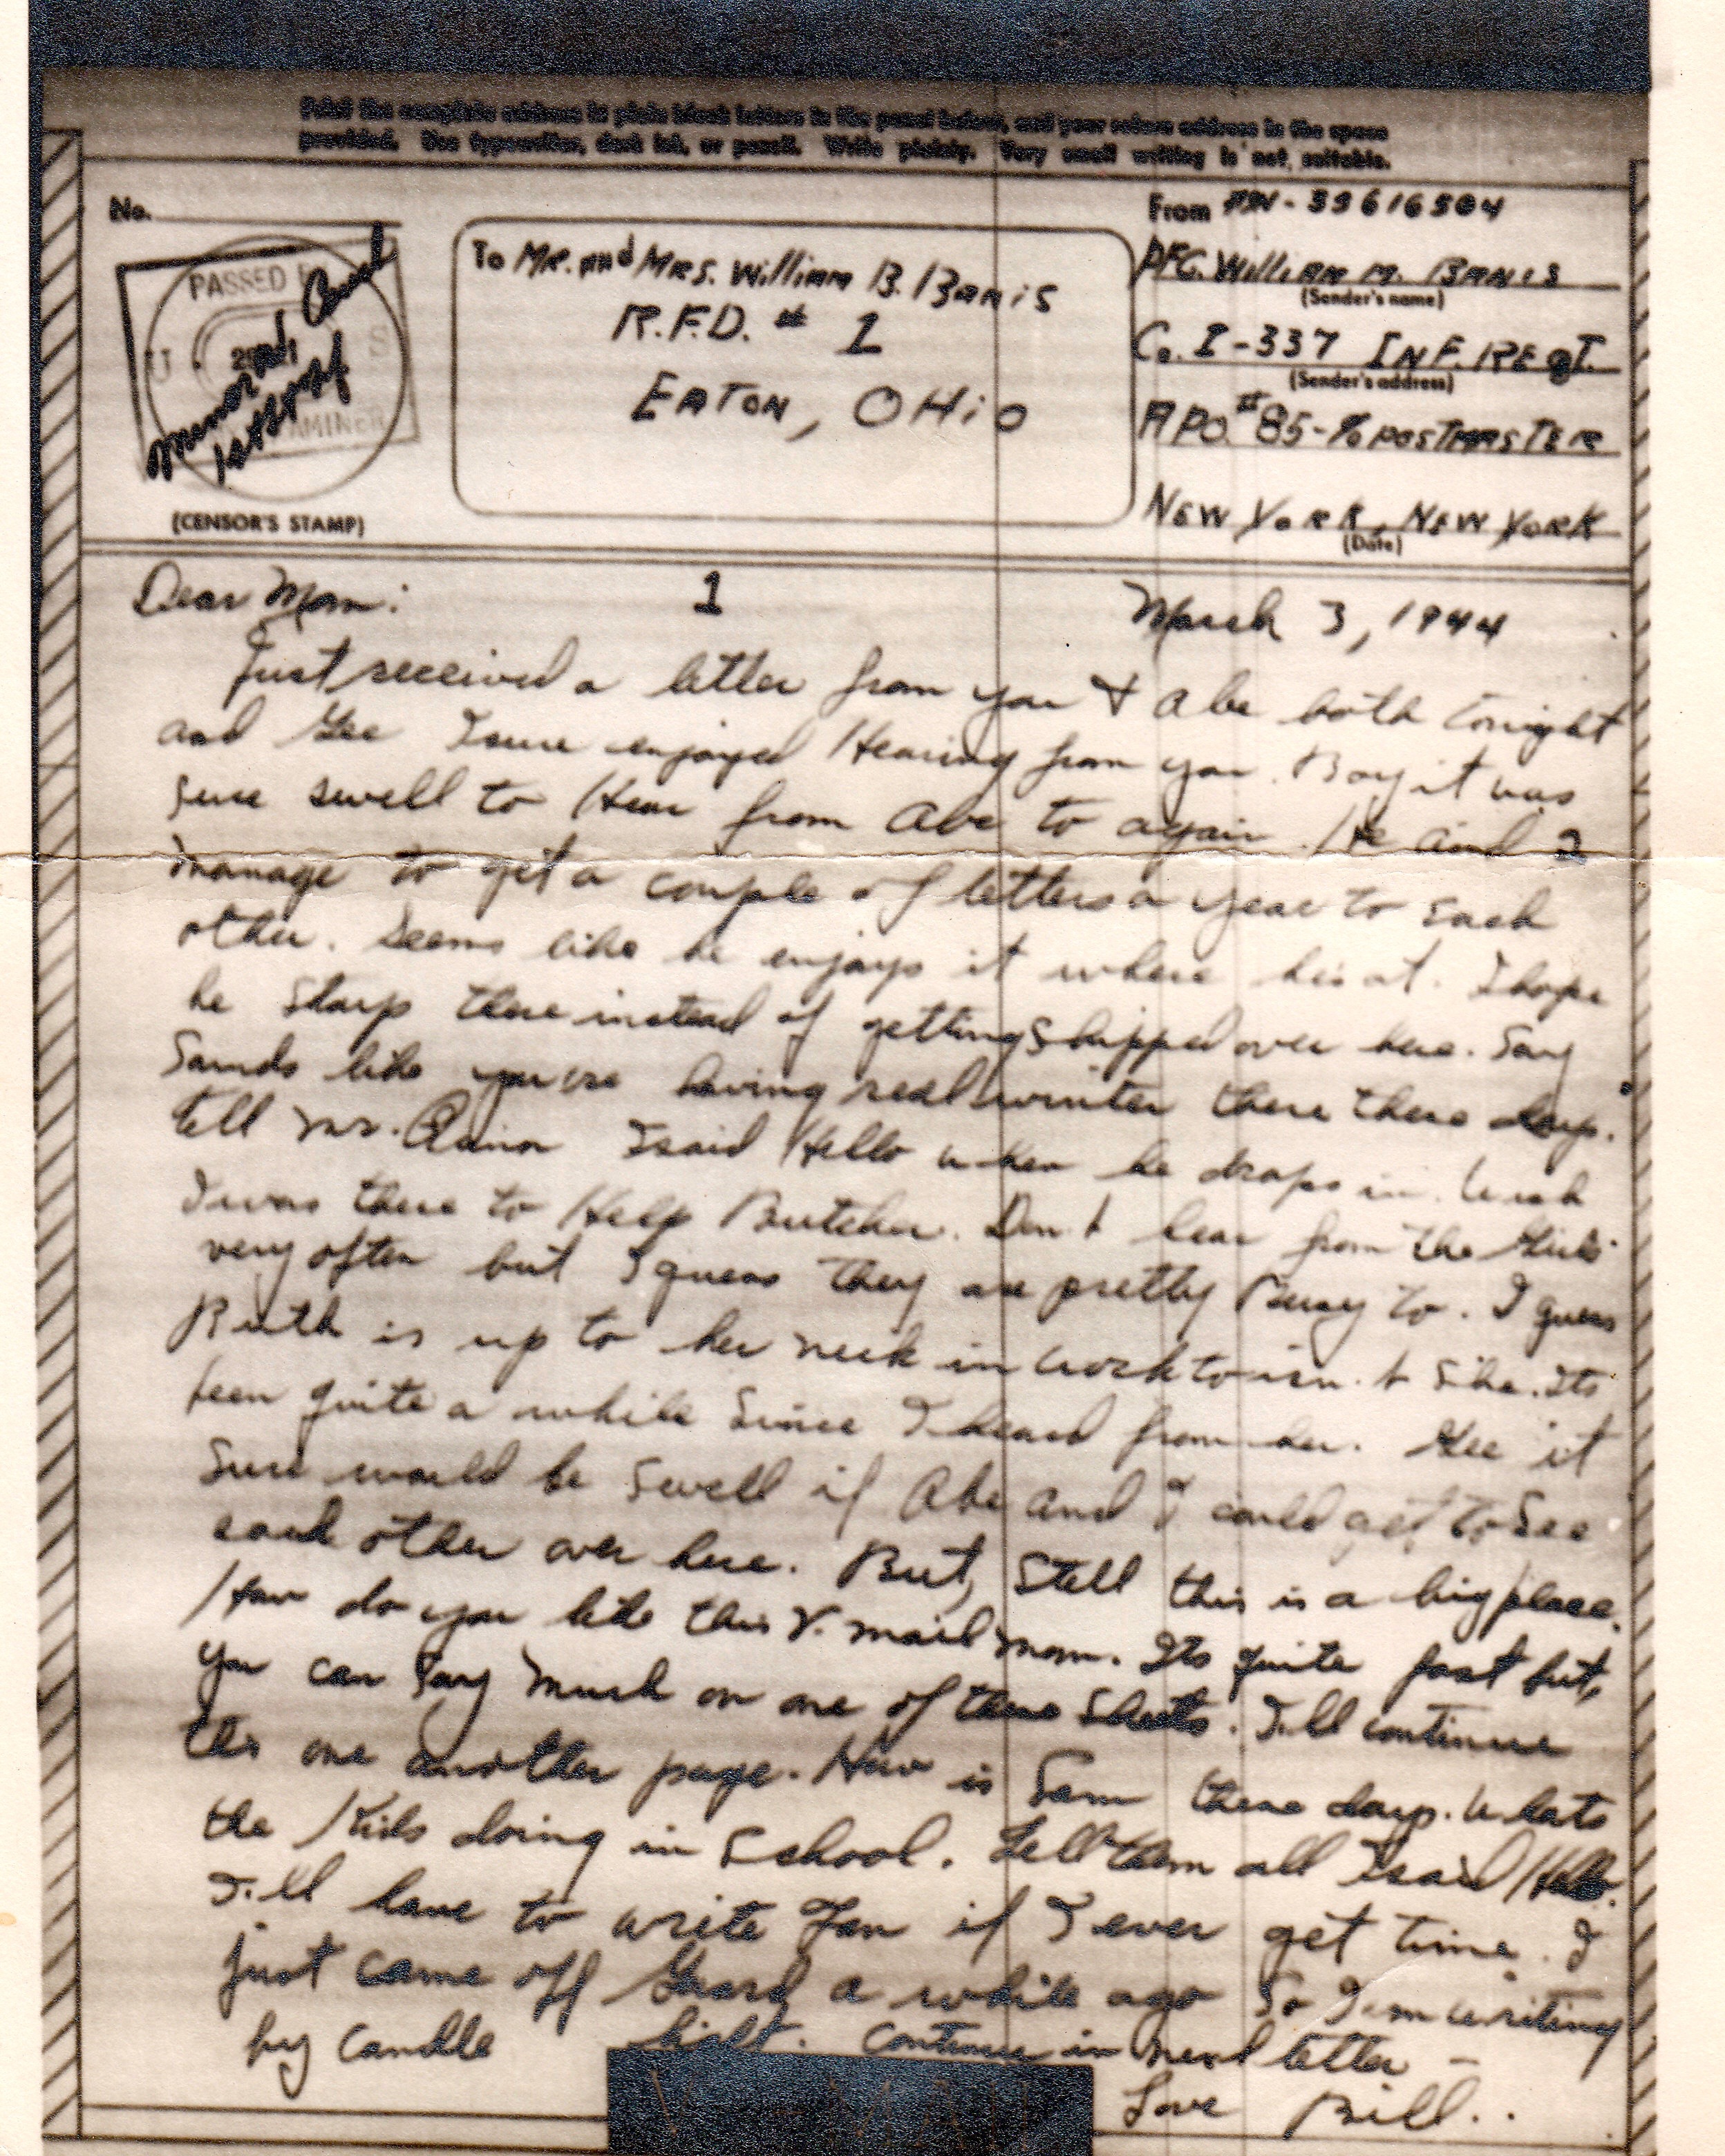 Print the complete address in plain block letters in the panel below, and your return address in the space
provided. Use typewriter, dark ink, or pencil. Write plainly. Very small writing is not suitable.
No.
PASSED BY
U S
EXAMINER
(CENSOR'S STAMP)
To Mr. and Mrs. William B. Banis
R.F.D. # 1
EATON, OHIO
From ASN - 35616504
PFC. William M. BANIS
(Sender's name)
Co. I - 337 INF. REGT.
(Sender's address)
APO #85 - % POSTMASTER
NEW YORK, NEW YORK
(Date)
Dear Mom: 1 March 3, 1944
Just received a letter from you & Abe both tonight
and Gee I sure enjoyed Hearing from you. Boy it was
sure swell to Hear from Abe to again. He and I
manage to get a couple of letters a year to each
other. Seems like he enjoys it where he's at. I hope
he stays there instead of getting shipped over here. Say
Sounds like you're having real winter there these days.
tell Mr. I said Hello when he drops in. Wish
I was there to Help Butcher. Don't hear from the Girls
very often but I guess they are pretty Busy to. I guess
Ruth is up to her neck in work to isn't she. Its
been quite a while since I heard from her. Gee it
Sure would be swell if Abe and I could get to see
each other over here. But, still this is a big place.
How do you like this V. mail Mom. Its quite fast but,
you can say much on one of these sheets. I'll continue
this one another page. How is Sam these days. Whats
the Kids doing in School. Tell them all I said Hello.
I'll have to write Fan if I ever get time. I
just came off Guard a while ago So I am writing
by Candle light. Continue in next letter -
Love Bill..
V-MAIL